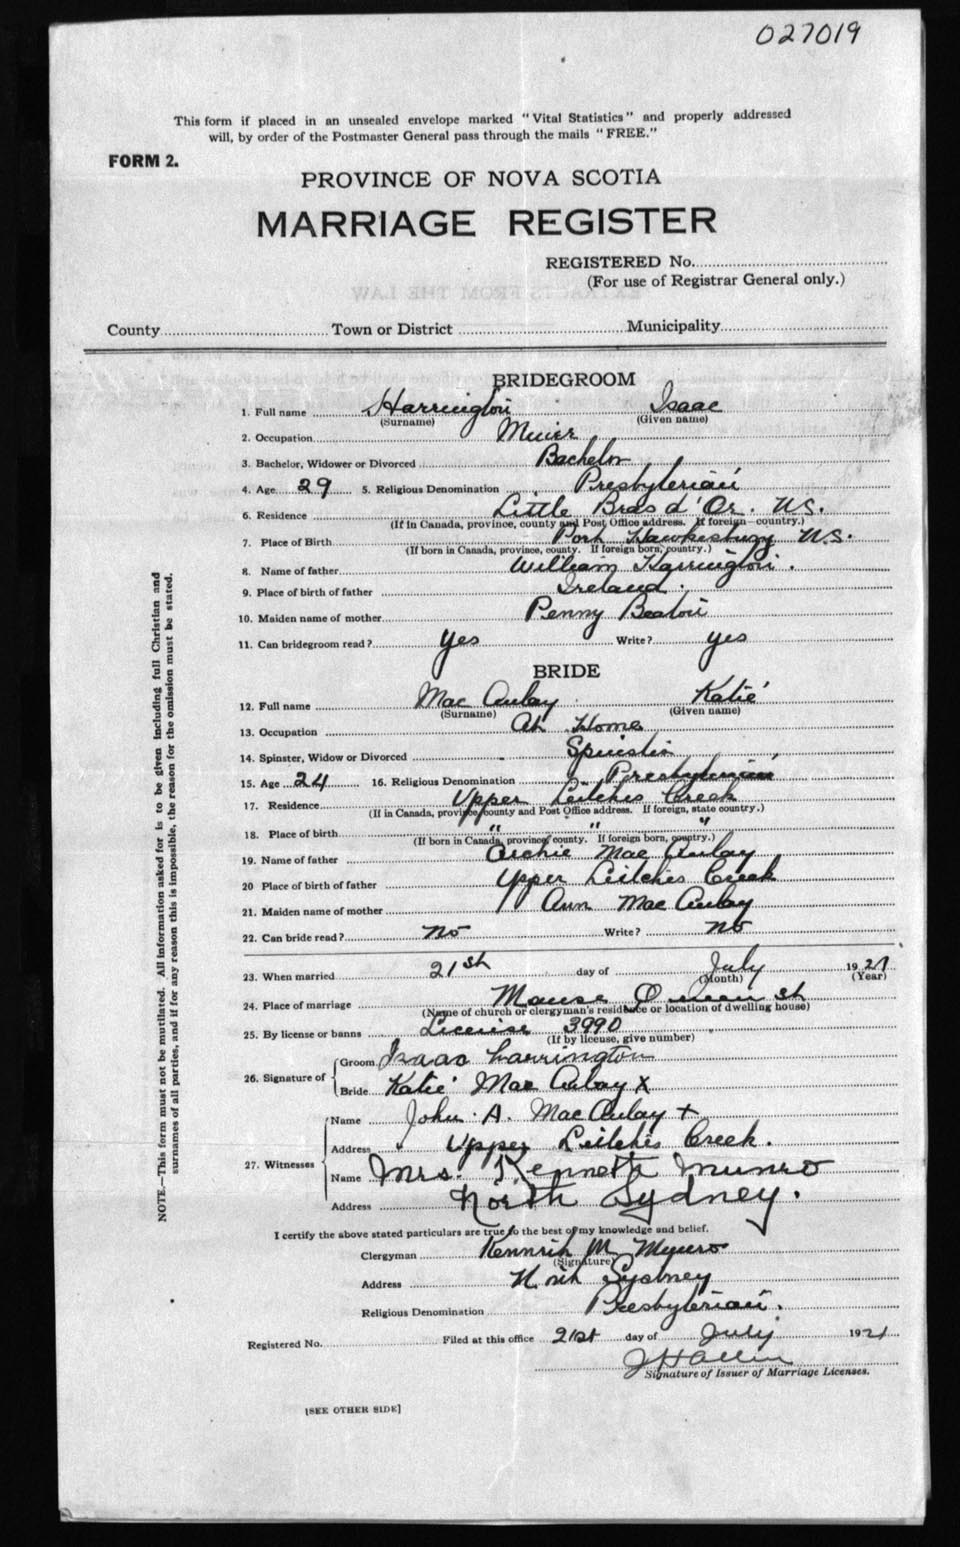 027019
This form if placed in an unsealed envelope marked "Vital Statistics" and properly addressed
will, by order of the Postmaster General pass through the mails "FREE."
FORM 2.
PROVINCE OF NOVA SCOTIA
MARRIAGE REGISTER
REGISTERED No.
(For use of Registrar General only.)
County Town or District Municipality
BRIDEGROOM
1. Full name Harrington Isaac
(Surname) (Given name)
2. Occupation Miner
3. Bachelor, Widower or Divorced Bachelor
4. Age 29 5. Religious Denomination Presbyterian
6. Residence Little Bras d'Or. N.S.
(If in Canada, province, county and Post Office address. If foreign—country.)
7. Place of Birth Port Hawkesbury N.S.
(If born in Canada, province, county. If foreign born, country.)
8. Name of father William Harrington.
9. Place of birth of father Ireland.
10. Maiden name of mother Penny Beaton
11. Can bridegroom read? yes Write? yes
BRIDE
12. Full name Mac Aulay Katie
(Surname) (Given name)
13. Occupation At Home
14. Spinster, Widow or Divorced Spinster
15. Age 24 16. Religious Denomination Presbyterian
17. Residence Upper Leitches Creek
(If in Canada, province, county and Post Office address. If foreign, state country.)
18. Place of birth " " "
(If born in Canada, province, county. If foreign born, country.)
19. Name of father Archie Mac Aulay
20 Place of birth of father Upper Leitches Creek
21. Maiden name of mother Ann Mac Aulay
22. Can bride read? No Write? No
23. When married 21st day of July 1921
(Month) (Year)
24. Place of marriage Manse Queen St
(Name of church or clergyman's residence or location of dwelling house)
25. By license or banns License 3990
(If by license, give number)
26. Signature of Groom Isaac Harrington
Bride Katie Mac Aulay X
27. Witnesses Name John A. MacAulay +
Address Upper Leitches Creek.
Name Mrs. Kenneth Munro
Address North Sydney.
I certify the above stated particulars are true to the best of my knowledge and belief.
Clergyman Kenneth M Munro
(Signature)
Address North Sydney
Religious Denomination Presbyterian.
Registered No. Filed at this office 21st day of July 1921
Signature of Issuer of Marriage Licenses.
[SEE OTHER SIDE]
NOTE.—This form must not be mutilated. All information asked for is to be given including full Christian and
surnames of all parties, and if for any reason this is impossible, the reason for the omission must be stated.
EXTRACTS FROM THE LAW